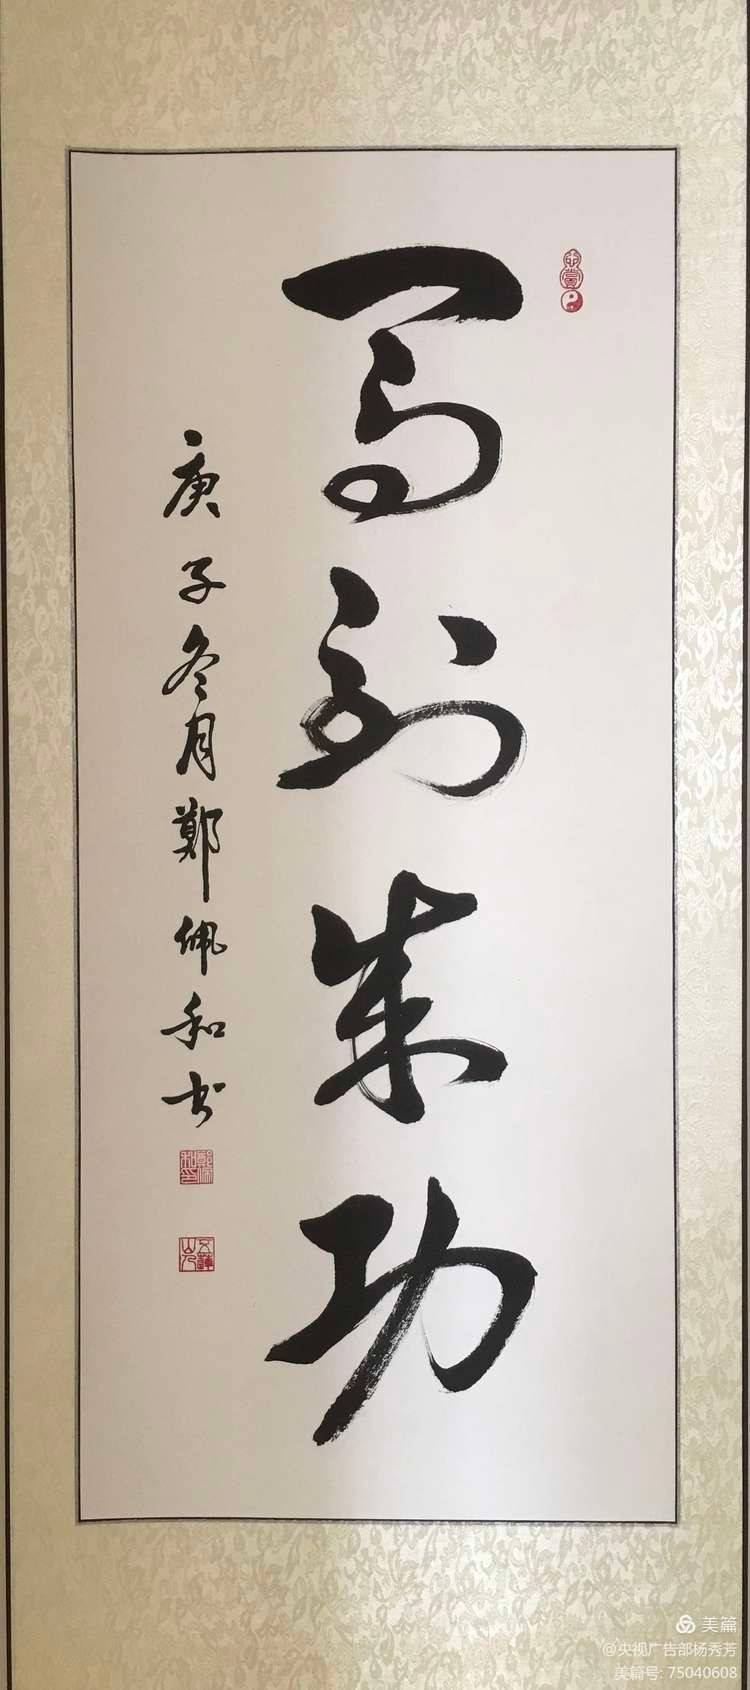 马到成功
庚子冬月郑佩和书
美篇
@央视广告部杨秀芳
美篇号: 75040608